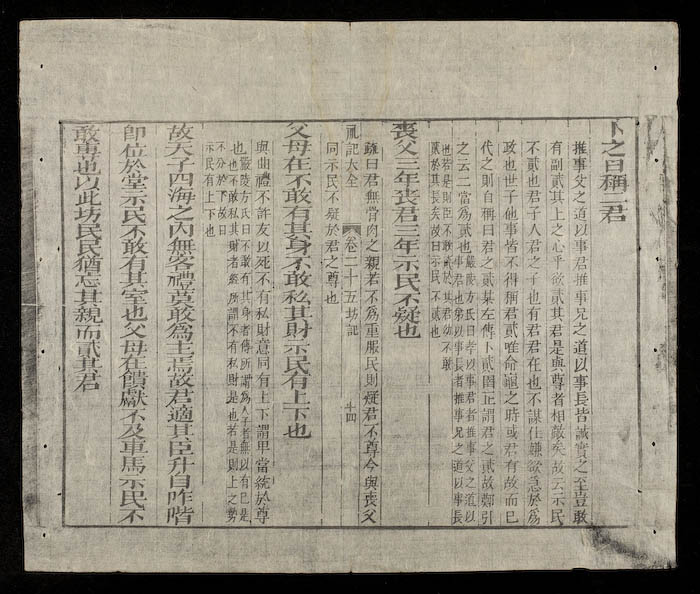 卜之日稱二君
推事父之道以事君推事兄之道以事長皆誠實之至豈敢
有副貳其上之心乎欲貳其君是與尊者相敵矣故云示民
不貳也君子人君之子也有君君在也不謀仕嫌欲急於為
政也世子他事皆不得稱君貳唯命龜之時或君有故而已
代之則自稱曰君之貳某左傳卜貳圉正謂君之貳故鄭引
之云二當為貳也嚴陵方氏曰孝以事君者推事父之道以
事君也弟以事長者推事兄之道以事長
也若是則臣不敢貳於其君幼不敢
貳於其長矣故曰示民不貳也
喪父三年喪君三年示民不疑也
疏曰君無骨肉之親若不為重服民則疑君不尊今與喪父
禮記大全 卷二十五坊記 十四
同示民不疑於君之尊也
父母在不敢有其身不敢私其財示民有上下也
與曲禮不許友以死不有私財意同有上下謂甲當統於尊
也嚴陵方氏曰不敢有其身者傳所謂為人子者無以有已是
也不敢私其財者經所謂不有私財是也若是則上之勢
不分於下故曰
示民有上下也
故天子四海之內無客禮莫敢為主焉故君適其臣升自阼階
即位於堂示民不敢有其室也父母在饋獻不及車馬示民不
敢專也以此坊民民猶忘其親而貳其君